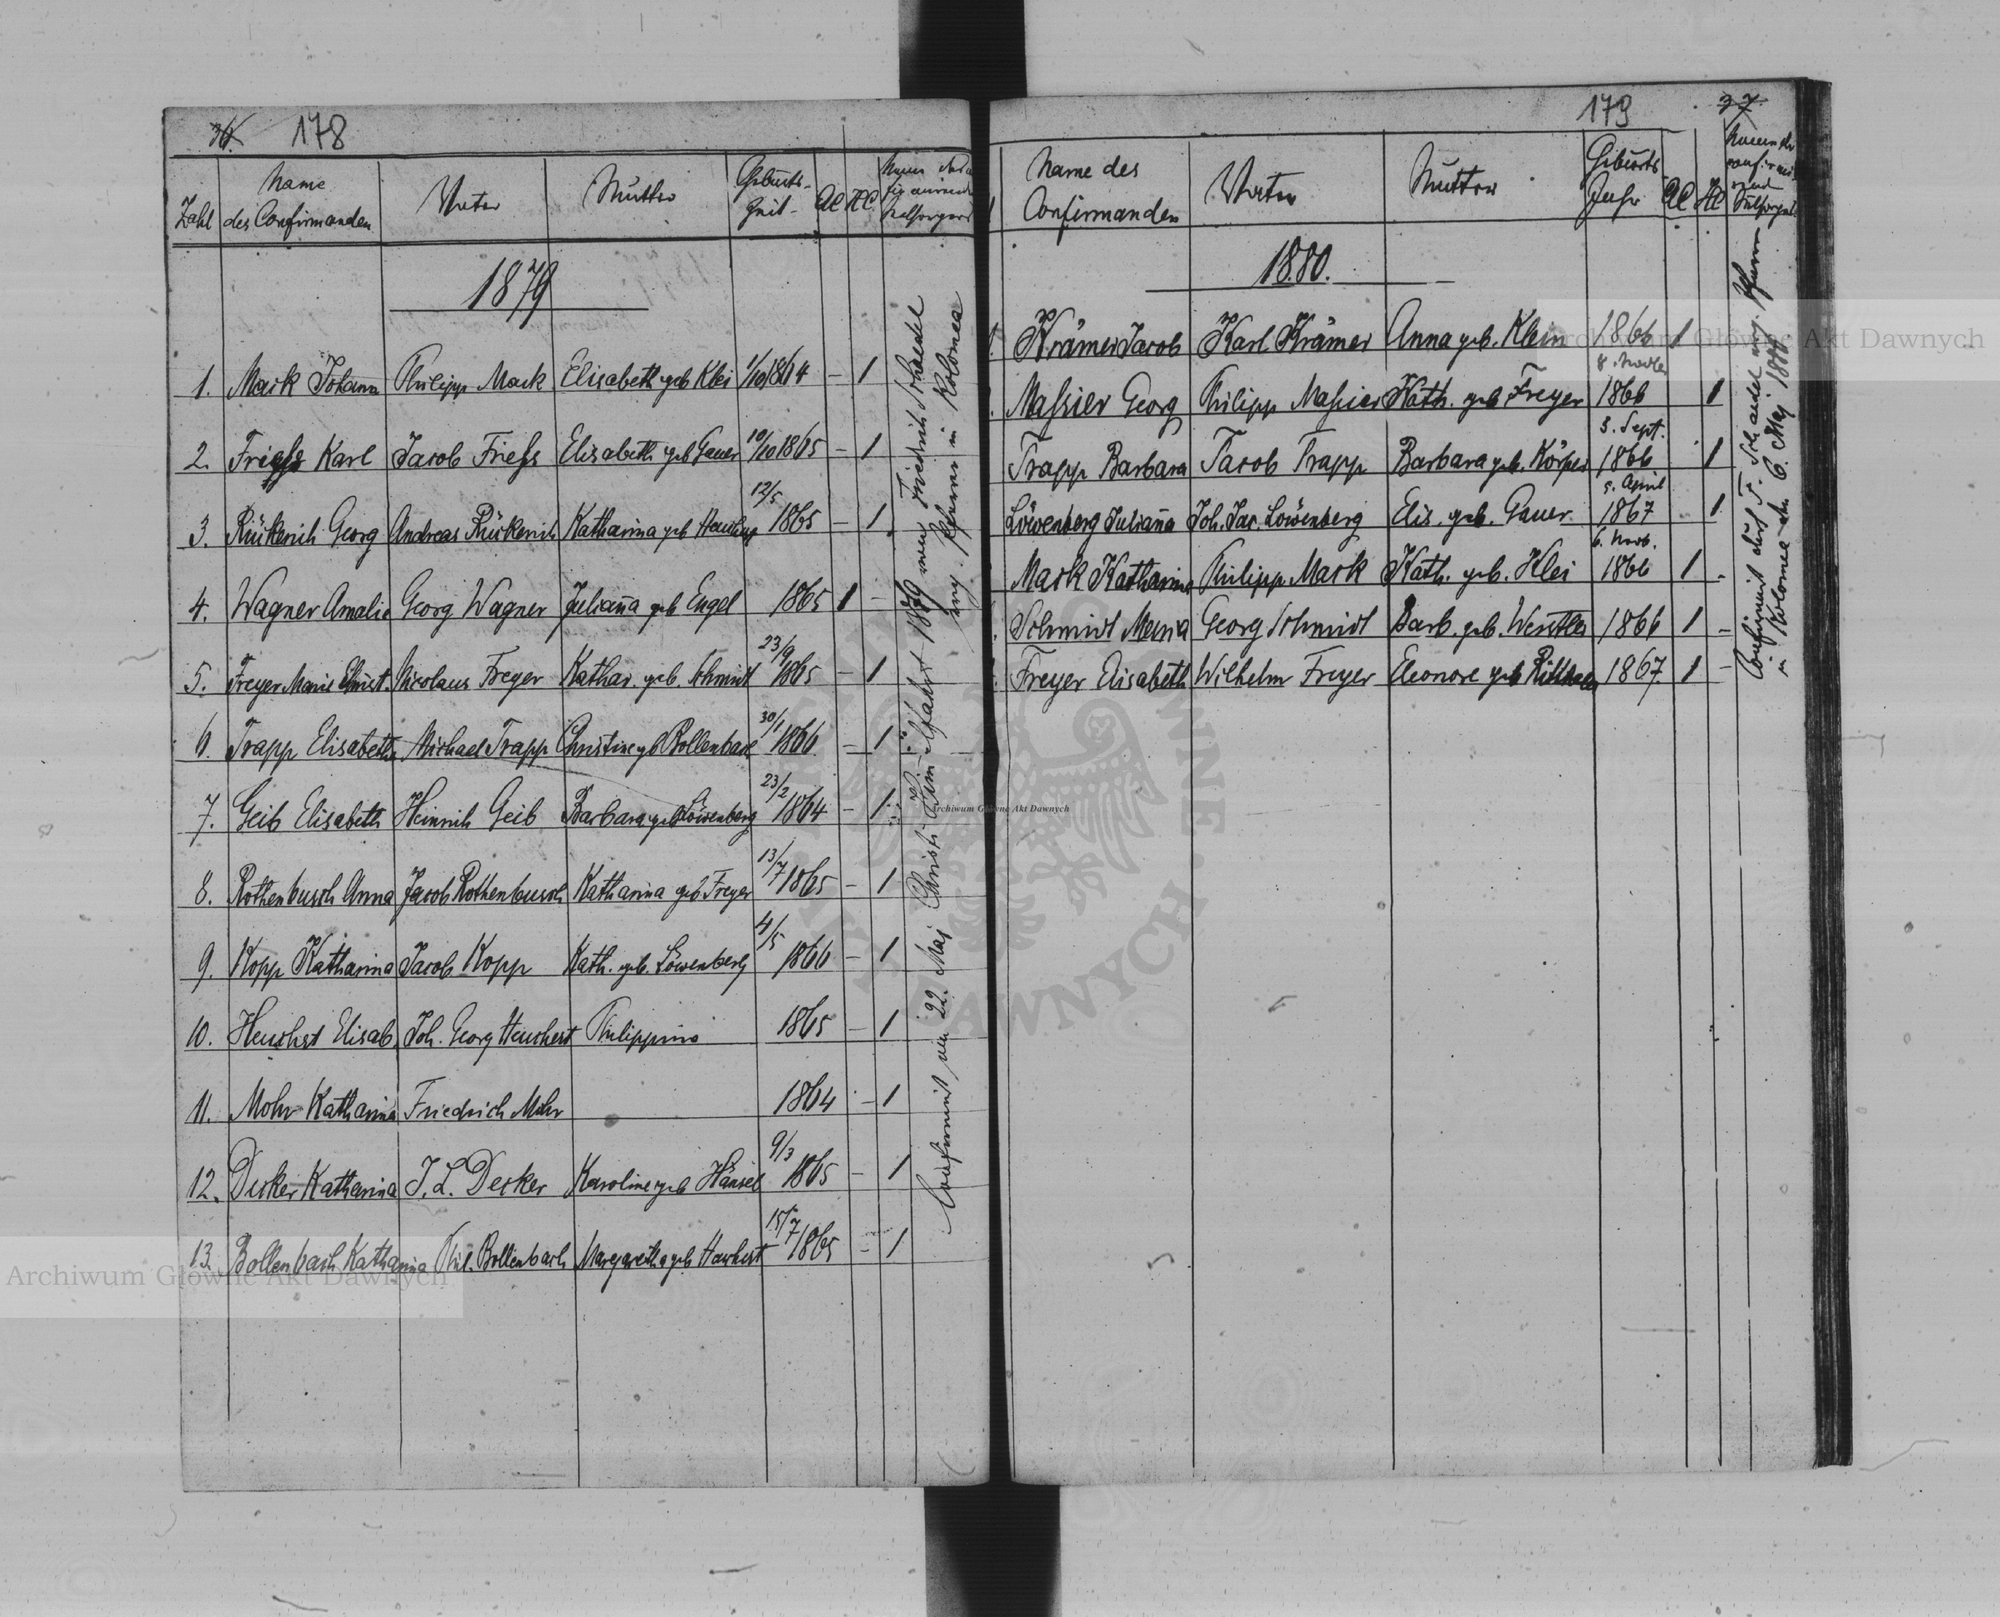 36. 178
Zahl Name des Confirmanden Vater Mutter Geburts-Zeit AC HC
1879
1. Mack Johann Philipp Mack Elisabeth geb Klei 1/10 1864 – 1
2. Friess Karl Jacob Friess Elisabeth geb Gauer 10/10 1865 – 1
3. Rückerich Georg Andreas Rückerich Katharina geb 12/5 1865 – 1
4. Wagner Amalie Georg Wagner Juliana geb Engel 1865 1 –
5. Freyer Marie Christ. Nicolaus Freyer Kathar. geb. Schmidt 23/9 1865 – 1
6. Trapp Elisabeth Michael Trapp Christine geb Bollenbach 30/1 1866 – 1
7. Geib Elisabeth Heinrich Geib Barbara geb Löwenberg 23/2 1864 – 1
8. Rothenbusch Anna Jacob Rothenbusch Katharina geb Freyer 13/7 1865 – 1
9. Kopp Katharina Jacob Kopp Kath. geb. Löwenberg 4/5 1866 – 1
10. Heuchert Elisab. Joh. Georg Heuchert Philippine 1865 – 1
11. Mohr Katharina Friedrich Mohr 1864 – 1
12. Decker Katharina J. L. Decker Karoline geb Hänsel 9/3 1865 – 1
13. Bollenbach Katharina Phil. Bollenbach Margaretha geb Heuchert 15/7 1865 – 1
Confirmirt, am 22. Mai Christi Himmelfahrt 1879 von Friedrich Schaedel
evg. Pfarrer in Kolomea
179 37
Name des Confirmanden Vater Mutter Geburts Jahr AC HC
1880.
Krämer Jacob Karl Krämer Anna geb. Klein 1866 1
Massier Georg Philipp Massier Kath. geb Freyer 8. Novber 1866 1
Trapp Barbara Jacob Trapp Barbara geb. Körper 5. Sept. 1866 1
Löwenberg Juliana Joh. Jac. Löwenberg Elis. geb. Gauer 5. April 1867 1
Mack Katharina Philipp Mack Kath. geb. Klei 6. Novb. 1866 1 –
Schmidt Georg Schmidt Barb. geb. 1866 1 –
Freyer Elisabeth Wilhelm Freyer Eleonore geb 1867 1 –
Confirmirt durch F. Schaedel evg. Pfarrer
in Kolomea den 6. Maj 1880.
Archiwum Główne Akt Dawnych
Archiwum Główne Akt Dawnych
Archiwum Główne Akt Dawnych